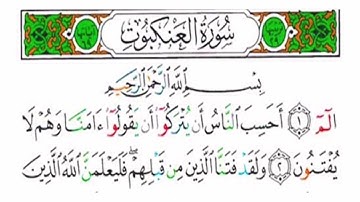 سُورَةُ الْعَنكَبُوتِ
بِسْمِ اللَّهِ الرَّحْمَٰنِ الرَّحِيمِ
الٓمٓ ﴿١﴾ أَحَسِبَ النَّاسُ أَن يُتْرَكُوٓا۟ أَن يَقُولُوٓا۟ ءَامَنَّا وَهُمْ لَا
يُفْتَنُونَ ﴿٢﴾ وَلَقَدْ فَتَنَّا الَّذِينَ مِن قَبْلِهِمْ ۖ فَلَيَعْلَمَنَّ اللَّهُ الَّذِينَ